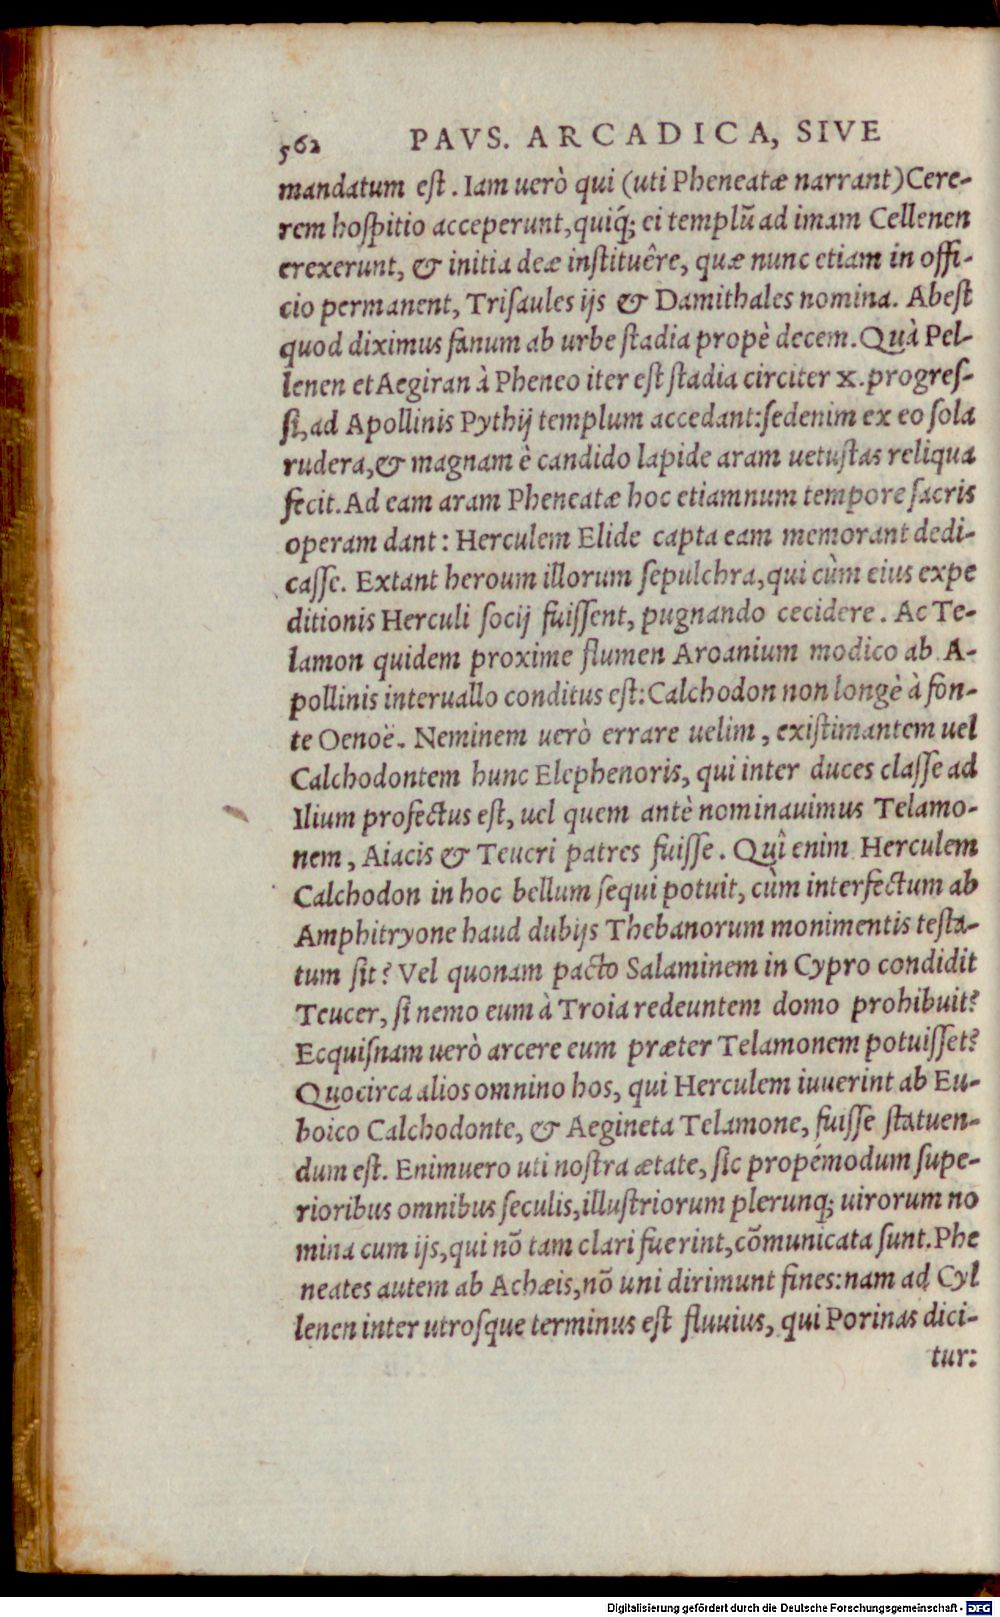 562 PAVS. ARCADICA, SIVE
mandatum est. Iam uerò qui (uti Pheneatæ narrant) Cere-
rem hospitio acceperunt, quiq́; ei templũ ad imam Cellenen
erexerunt, & initia deæ instituêre, quæ nunc etiam in offi-
cio permanent, Trisaules ijs & Damithales nomina. Abest
quod diximus fanum ab urbe stadia propè decem. Quà Pel-
lenen et Aegiran à Pheneo iter est stadia circiter x. progres-
si, ad Apollinis Pythij templum accedant: sedenim ex eo sola
rudera, & magnam è candido lapide aram uetustas reliqua
fecit. Ad eam aram Pheneatæ hoc etiamnum tempore sacris
operam dant: Herculem Elide capta eam memorant dedi-
casse. Extant heroum illorum sepulchra, qui cùm eius expe
ditionis Herculi socij fuissent, pugnando cecidere. Ac Te-
lamon quidem proxime flumen Aroanium modico ab A-
pollinis interuallo conditus est: Calchodon non longè à fon-
te Oenoë. Neminem uerò errare uelim, existimantem uel
Calchodontem hunc Elephenoris, qui inter duces classe ad
Ilium profectus est, uel quem antè nominauimus Telamo-
nem, Aiacis & Teucri patres fuisse. Quî enim Herculem
Calchodon in hoc bellum sequi potuit, cùm interfectum ab
Amphitryone haud dubijs Thebanorum monimentis testa-
tum sit? Vel quonam pacto Salaminem in Cypro condidit
Teucer, si nemo eum à Troia redeuntem domo prohibuit?
Ecquisnam uerò arcere eum præter Telamonem potuisset?
Quocirca alios omnino hos, qui Herculem iuuerint ab Eu-
boico Calchodonte, & Aegineta Telamone, fuisse statuen-
dum est. Enimuero uti nostra ætate, sic propémodum supe-
rioribus omnibus seculis, illustriorum plerunq; uirorum no
mina cum ijs, qui nõ tam clari fuerint, cõmunicata sunt. Phe
neates autem ab Achæis, nõ uni dirimunt fines: nam ad Cyl
lenen inter utrosque terminus est fluuius, qui Porinas dici-
tur:
Digitalisierung gefördert durch die Deutsche Forschungsgemeinschaft - DFG